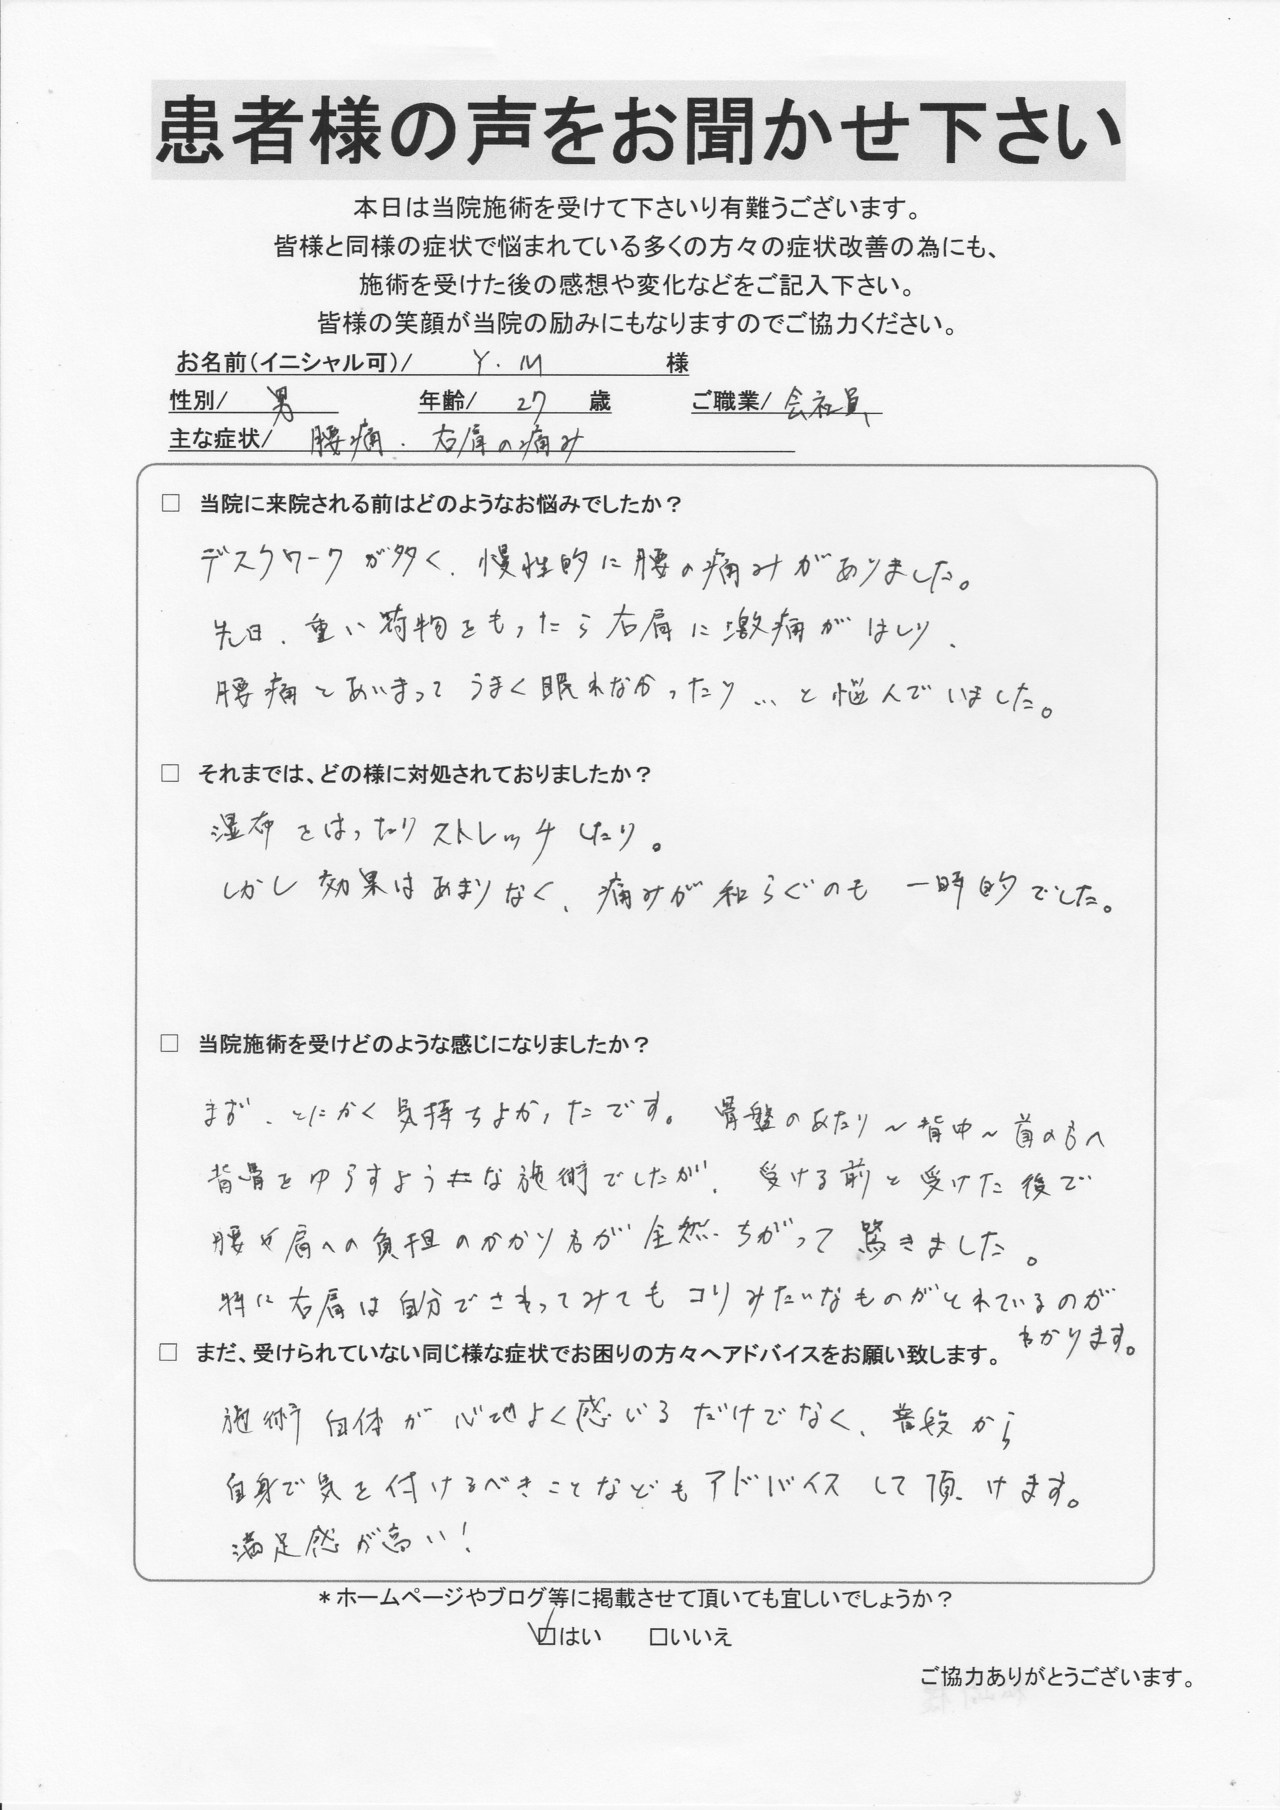 患者様の声をお聞かせ下さい
本日は当院施術を受けて下さいり有難うございます。
皆様と同様の症状で悩まれている多くの方々の症状改善の為にも、
施術を受けた後の感想や変化などをご記入下さい。
皆様の笑顔が当院の励みにもなりますのでご協力ください。
お名前(イニシャル可)/ Y.M 様
性別/ 男 年齢/ 27 歳 ご職業/ 会社員
主な症状/ 腰痛.右肩の痛み
□ 当院に来院される前はどのようなお悩みでしたか?
デスクワークが多く、慢性的に腰の痛みがありました。
先日、重い荷物をもったら右肩に激痛がはしり、
腰痛とあいまってうまく眠れなかったり…と悩んでいました。
□ それまでは、どの様に対処されておりましたか?
湿布をはったりストレッチしたり。
しかし効果はあまりなく、痛みが和らぐのも一時的でした。
□ 当院施術を受けどのような感じになりましたか?
まず、とにかく気持ちよかったです。骨盤のあたり~背中~首の方へ
背骨をゆらすような施術でしたが、受ける前と受けた後で
腰や肩への負担のかかり方が全然ちがって驚きました。
特に右肩は自分でさわってみてもコリみたいなものがとれているのが
わかります。
□ まだ、受けられていない同じ様な症状でお困りの方々へアドバイスをお願い致します。
施術自体が心地よく感じるだけでなく、普段から
自身で気を付けるべきことなどもアドバイスして頂けます。
満足感が高い!
*ホームページやブログ等に掲載させて頂いても宜しいでしょうか?
☑はい □いいえ
ご協力ありがとうございます。